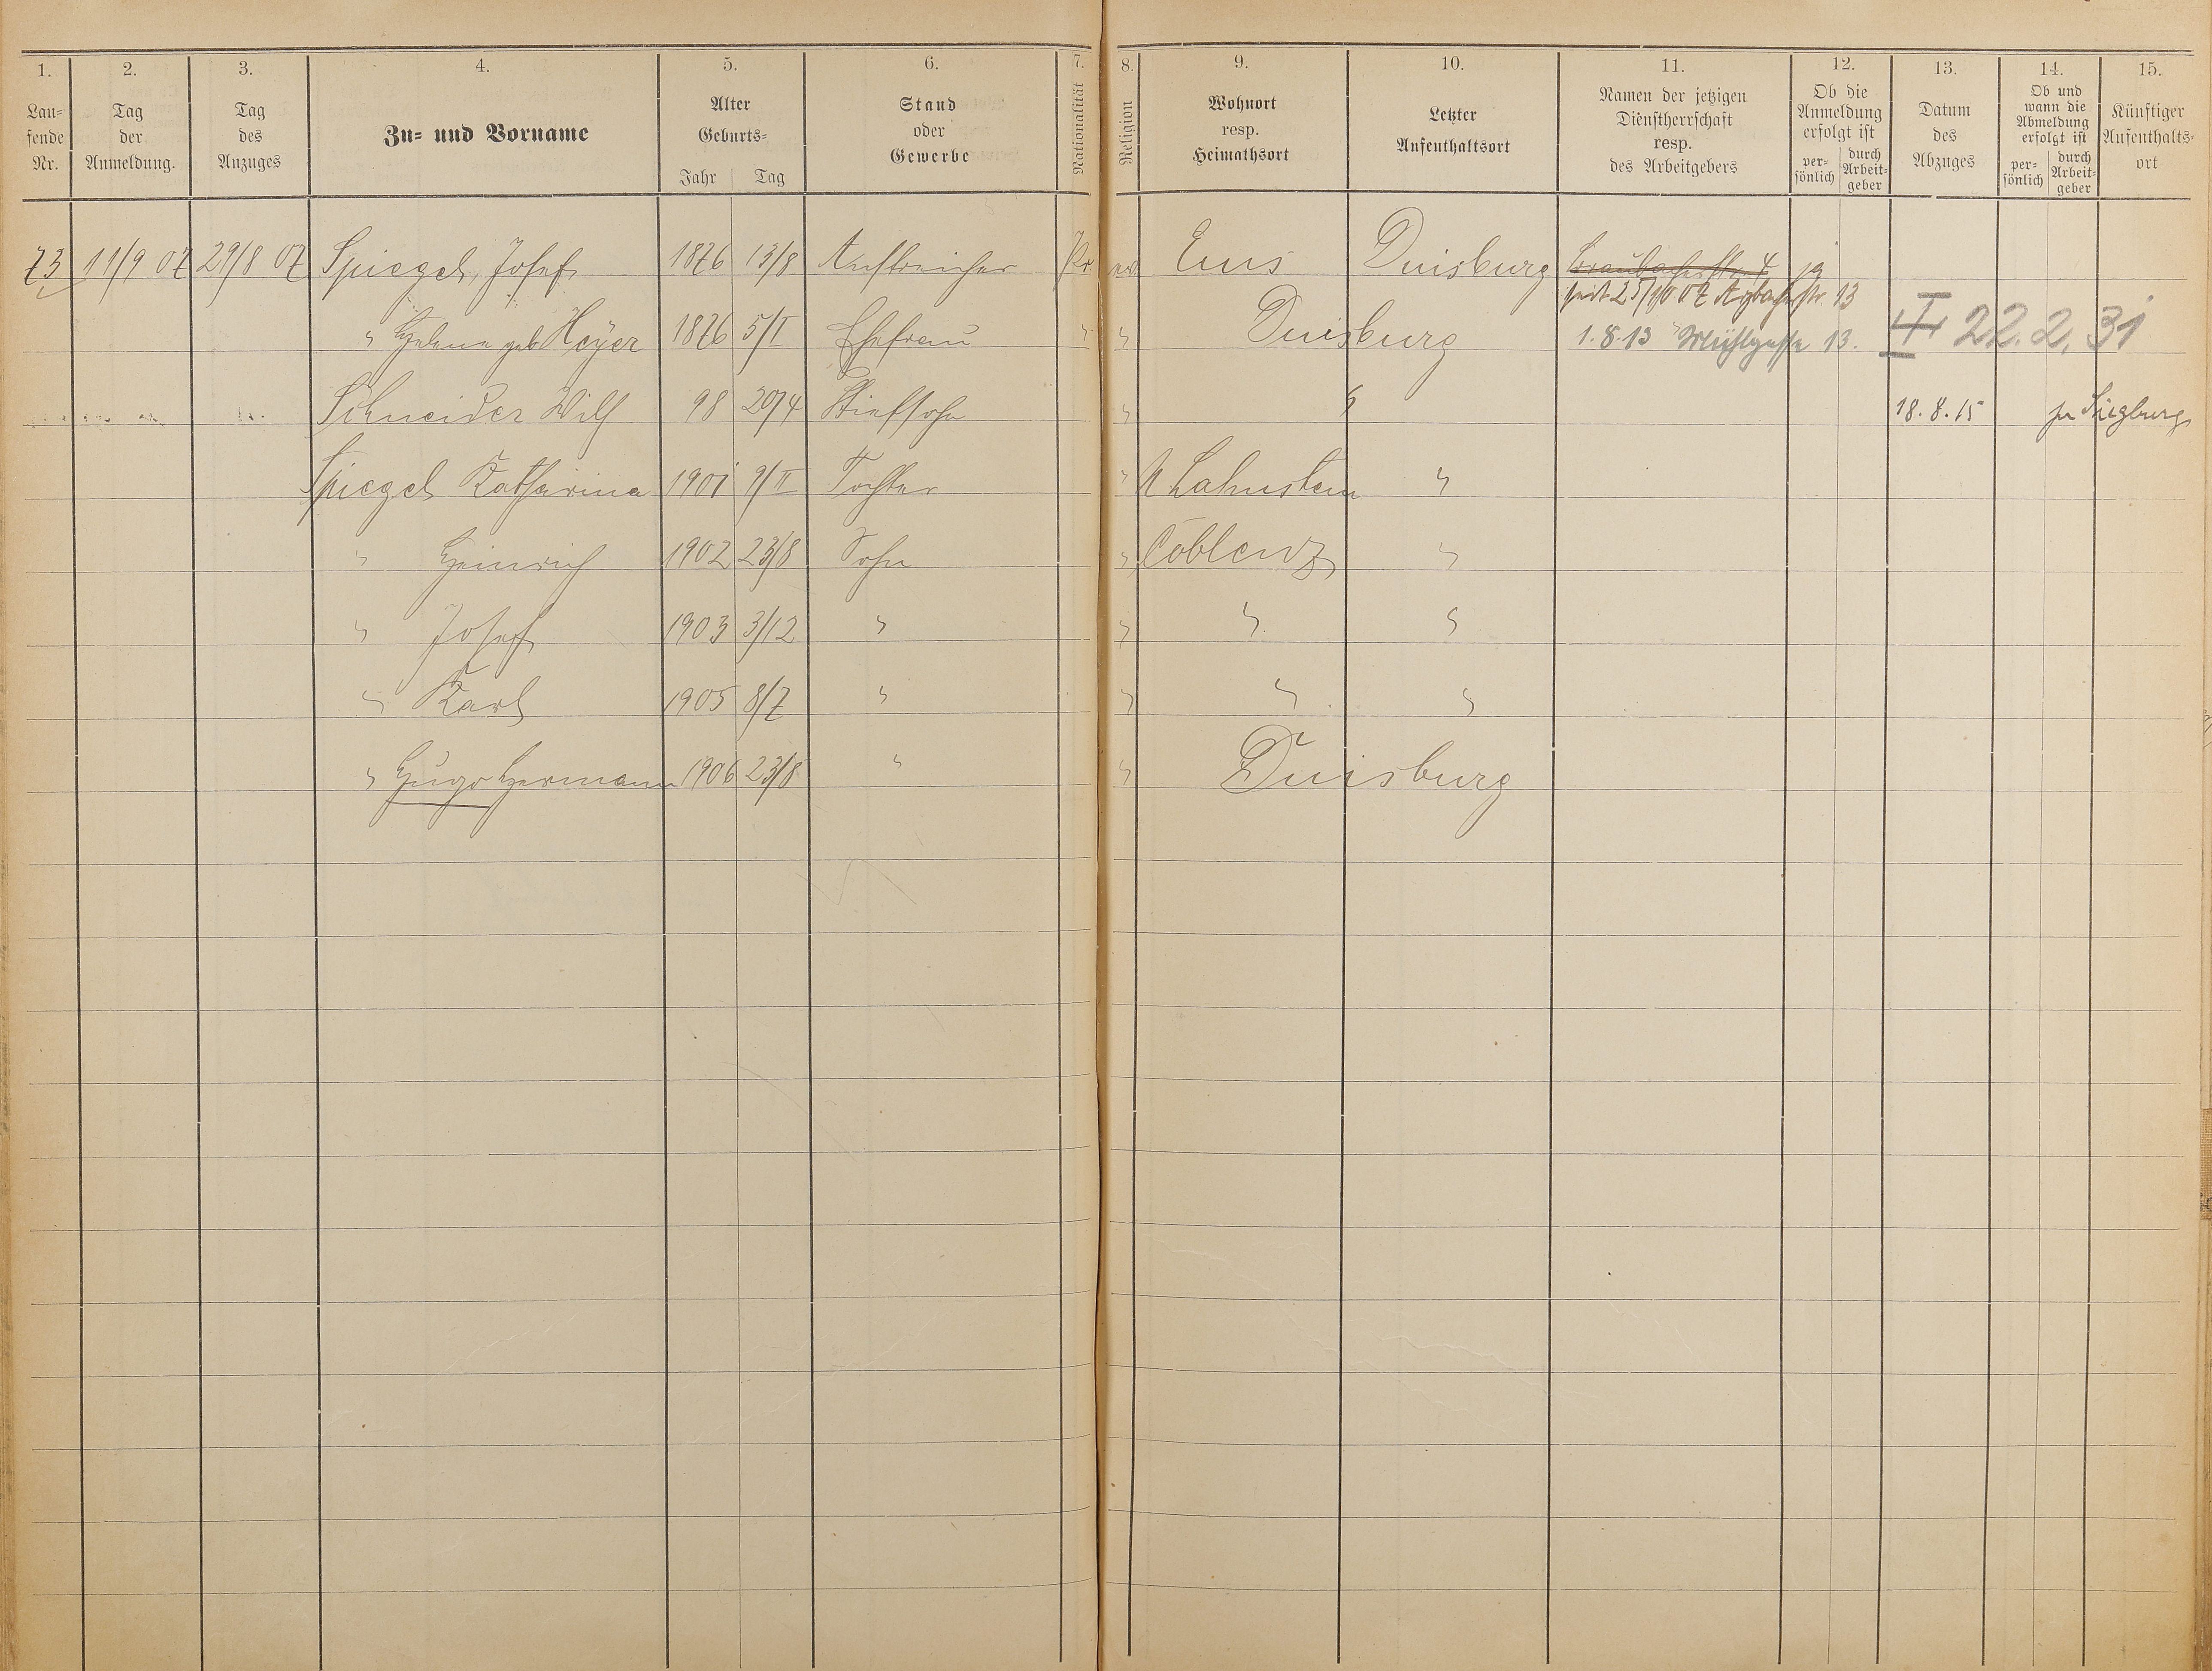 1. 2. 3. 4. 5. 6. 7. 8. 9. 10. 11. 12. 13. 14. 15.
Lau=
fende
Nr.
Tag
der
Anmeldung.
Tag
des
Anzuges
Zu= und Vorname
Alter
Geburts=
Jahr Tag
Stand
oder
Gewerbe
Nationalität
Religion
Wohnort
resp.
Heimathsort
Letzter
Aufenthaltsort
Namen der jetzigen
Dienstherrschaft
resp.
des Arbeitgebers
Ob die
Anmeldung
erfolgt ist
per=
sönlich
durch
Arbeit=
geber
Datum
des
Abzuges
Ob und
wann die
Abmeldung
erfolgt ist
per=
sönlich
durch
Arbeit=
geber
Künftiger
Aufenthalts=
ort
73 11/9 07 29/8 07 Spiegel, Josef 1876 13/8 Anstreicher Pr. ev. Ems Duisburg Braubacherstr. 4 ja
seit 25/10 07 str. 13
" Helene geb Heyer 1876 5/I Ehefrau " " Duisburg 1.8.13 Mühlgasse 13. 22. 2. 31
Schneider Wilh 98 20/4 Stiefsohn " " 18. 8. 15 Siegburg
Spiegel Katharina 1901 9/II Tochter " N Lahnstein "
" Heinrich 1902 23/8 Sohn " Coblenz "
" Josef 1903 3/12 " " " "
" Karl 1905 8/7 " " " "
" Hugo Hermann 1906 23/8 " " Duisburg